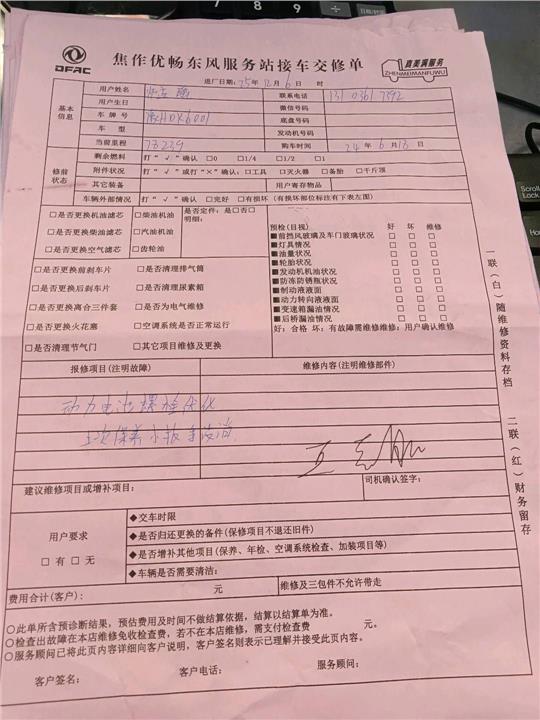 7 8 9
Scroll Lock
Home
DFAC
焦作优畅东风服务站接车交修单
真美满服务
ZHENMEIMANFUWU
进厂日期:25年12月6日 时
基本信息
用户姓名
联系电话 131 0361 7392
用户生日 微信号码
车牌号 底盘号码
车型 发动机号码
当前里程 73239 购车时间 24年6月13日
修前状态
剩余燃料 打“√”确认 □0 □1/4 □1/2 □1
附件状况 打“√”或打“×”确认:□工具 □灭火器 □备胎 □千斤顶
其它装备 用户寄存物品
车辆外部情况 打“√”确认 □完好 □有损坏(有损坏部位标注有下表左图)
□是否更换机油滤芯 □柴油机油 是否定件:是□否□
明细:
□是否更换柴油滤芯 □汽油机油
□是否更换空气滤芯 □齿轮油
□是否更换前刹车片 □是否清理排气筒
□是否更换后刹车片 □是否清理尿素箱
□是否更换离合三件套 □是否为电气维修
□是否更换火花塞 □空调系统是否正常运行
□是否清理节气门 □其它项目维修及更换
预检(目视) 好 坏 维修
■前挡风玻璃及车门玻璃状况 □ □ □
■灯具情况 □ □ □
■油量状况 □ □ □
■轮胎状况 □ □ □
■发动机机油状况 □ □ □
■防冻防锈瓶状况 □ □ □
■制动液液面 □ □ □
■动力转向液液面 □ □ □
■变速箱漏油情况 □ □ □
■后桥漏油情况 □ □ □
好:合格 坏:有故障需维修维修:用户确认维修
报修项目(注明故障) 维修内容(注明维修部件)
动力电池螺栓优化
上次保养小扳手没消
建议维修项目或增补项目: 司机确认签字:
用户要求
□有 □无
◆交车时限
◆是否归还更换的备件(保修项目不退还旧件)
◆是否增补其他项目(保养、年检、空调系统检查、加装项目等)
◆车辆是否需要清洁:
费用合计(客户): 元 维修及三包件不允许带走
○此单所含预诊断结果,预估费用及时间不做结算依据,结算以结算单为准。
○检查出故障在本店维修免收检查费,若不在本店维修,需支付检查费 元。
○服务顾问已将此页内容详细向客户说明,客户签名则表示已理解并接受此页内容。
客户签名: 客户电话: 服务顾问:
一联(白)随维修资料存档
二联(红)财务留存